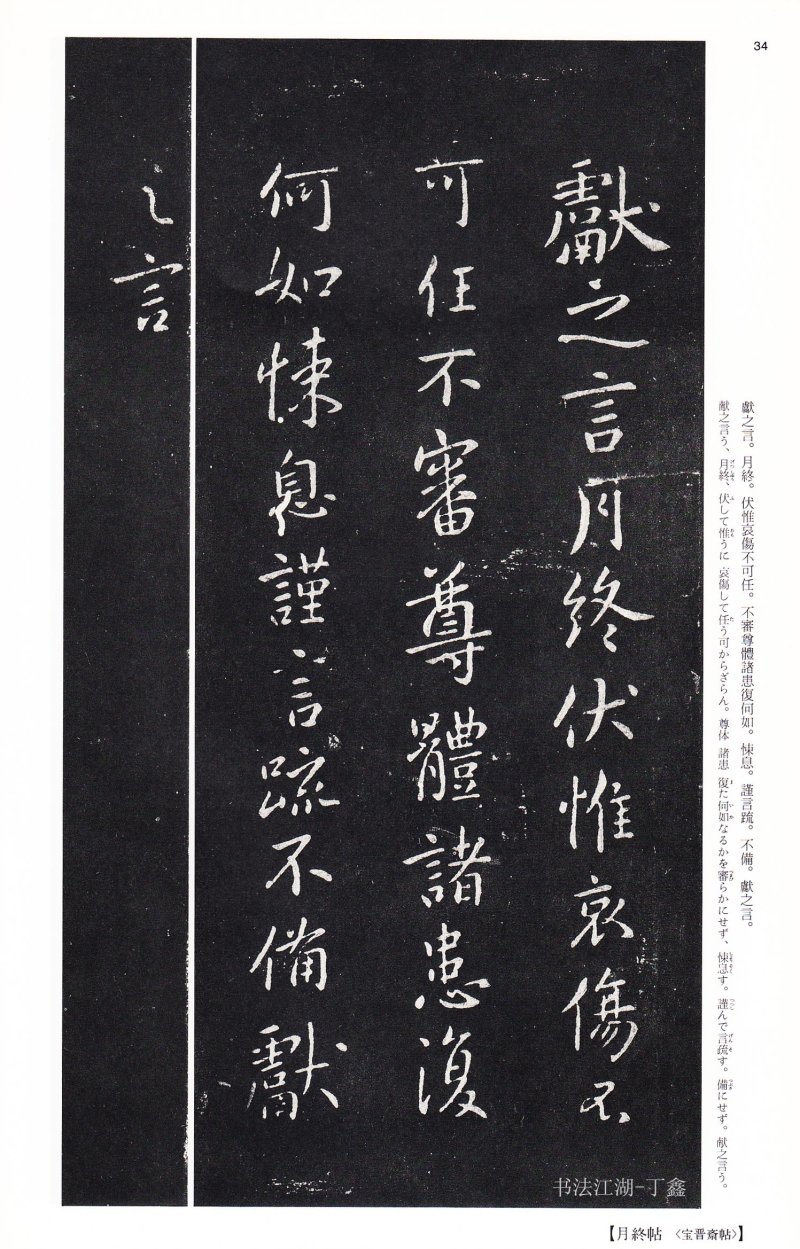 34
獻之言。月終。伏惟哀傷不可任。不審尊體諸患復何如。悚息。謹言疏。不備。獻之言。
献之言う、月終、伏して惟うに 哀傷して任う可からざらん。尊体 諸患 復た何如なるかを審らかにせず、悚息す。謹んで言疏す。備にせず。献之言う。
獻之言月終伏惟哀傷不
可任不審尊體諸患復
何如悚息謹言疏不備獻
之言
书法江湖-丁鑫
【月終帖 〈宝晋斎帖〉】